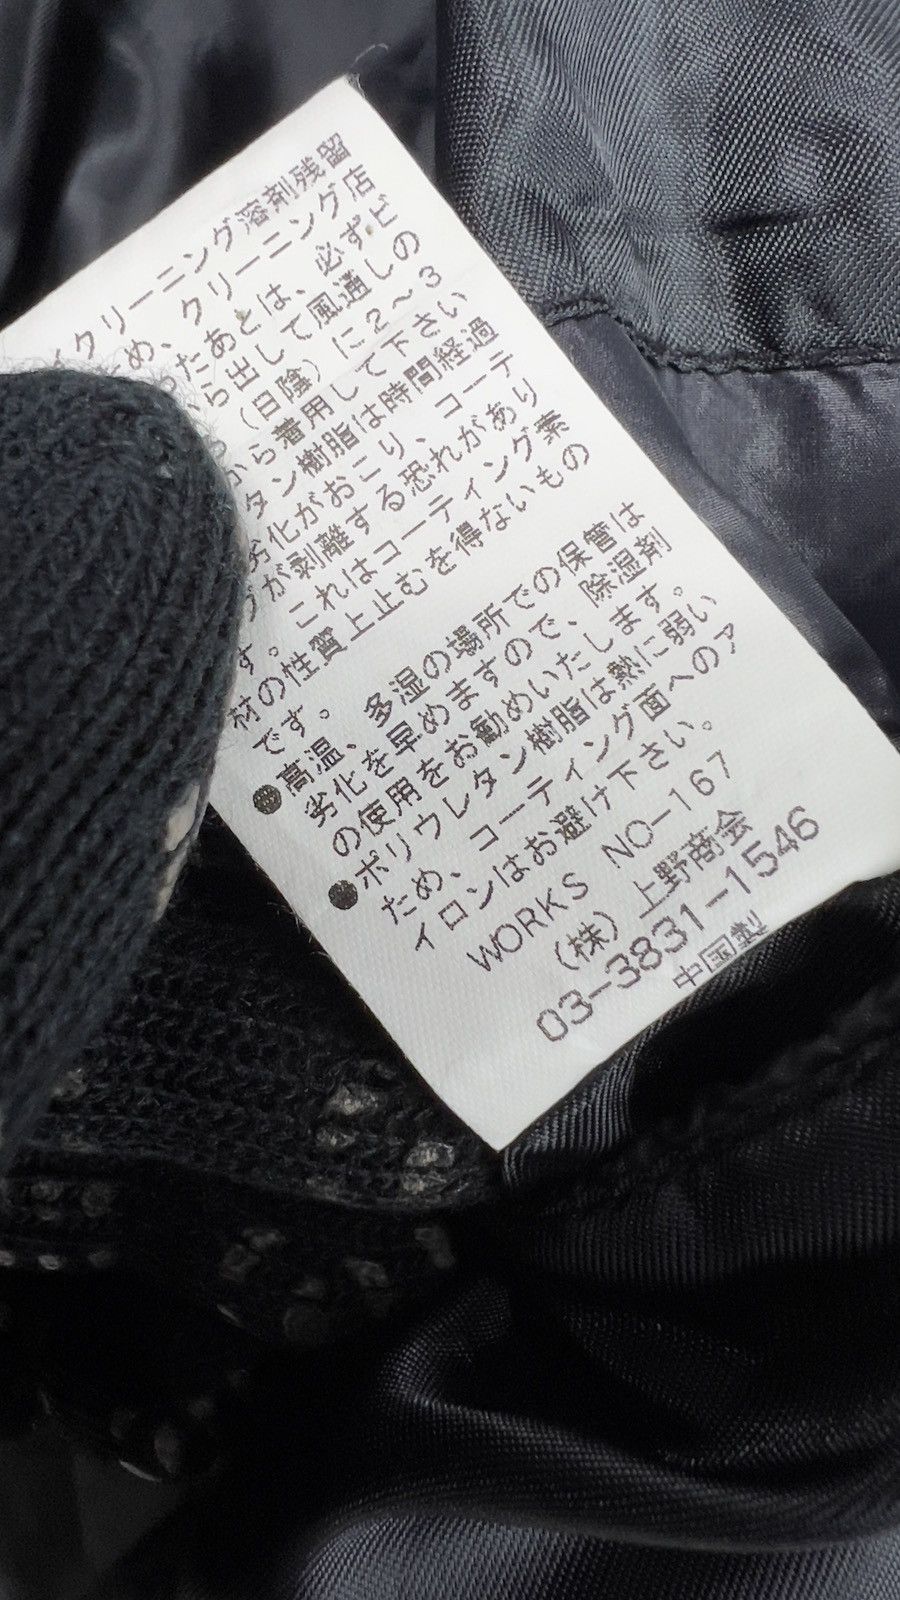 クリーニング溶剤残留
め、クリーニング店
たあとは、必ずビ
ら出して風通しの
(日陰)に2~3
から着用して下さい
タン樹脂は時間経過
劣化がおこり、コーテ
が剥離する恐れがあり
す。これはコーティング素
材の性質上止むを得ないもの
です。
●高温、多湿の場所での保管は
劣化を早めますので、除湿剤
の使用をお勧めいたします。
●ポリウレタン樹脂は熱に弱い
ため、コーティング面へのア
イロンはお避け下さい。
WORKS NO-167
(株)上野商会
03-3831-1546
中国製